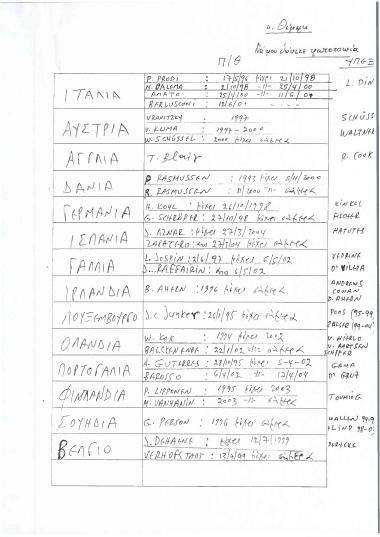 κ. Θέμο
Π/Θ
ΥΠΕΞ
ΙΤΑΛΙΑ
R. PRODI : 17/5/96 μέχρι 21/10/98
M. DALEMA : 21/10/98 -||- 25/4/00
AMATO : 25/4/00 -||- 11/6/01
BERLUSCONI : 12/6/01 - - - -
L. DINI
ΑΥΣΤΡΙΑ
VRANITZKY : 1997
V. KLIMA : 1997 - 2000
W. SCHÜSSEL : 2000 μέχρι σήμερα
SCHÜSS
WALTNER
ΑΓΓΛΙΑ
T. Blair
R. COOK
ΔΑΝΙΑ
P RASMUSSEN : 1993 μέχρι 5/11/2000
R. RASMUSSEN : 11/2000 -||- σήμερα
ΓΕΡΜΑΝΙΑ
H. KOHL : μέχρι 26/10/1998
G. SCHRÖDER : 27/10/98 μέχρι σήμερα
KINKEL
FISCHER
ΙΣΠΑΝΙΑ
J. AZNAR : μέχρι 27/3/2004
ZAPATERO : Από 27/3/04 μέχρι σήμερα
MATUTES
ΓΑΛΛΙΑ
L. JOSPIN : 2/6/97 μέχρι 6/5/02
J. RAFFARIN : Από 6/5/02
VEDRINE
DE VILLEPA
ΙΡΛΑΝΔΙΑ
B. AHERN : 1996 μέχρι σήμερα
ANDREWS
COWAN
D. AHERN
ΛΟΥΞΕΜΒΟΥΡΓΟ
J. C. Junker : 20/1/95 μέχρι σήμερα
POOS (95-99)
ΟΛΑΝΔΙΑ
W. KOK : 1994 μέχρι 2002
BALCKENENDE : 22/1/02 -||- σήμερα
V. MIERLO
V. AARTSEN
ΠΟΡΤΟΓΑΛΙΑ
A. GUTERRES : 28/10/95 μέχρι 5-4-02
BAROSSO : 6/4/02 -||- 12/4/04
GAMA
ΦΙΝΛΑΝΔΙΑ
P. LIPPONEN : 1995 μέχρι 2003
M. VANHANIN : 2003 -||- σήμερα
ΣΟΥΗΔΙΑ
G. PERSON : 1996 μέχρι σήμερα
ΒΕΛΓΙΟ
J. DEHAENE : μέχρι 12/7/1999
VERHOFSTADT : 12/7/99 μέχρι σήμερα
DERYCKE